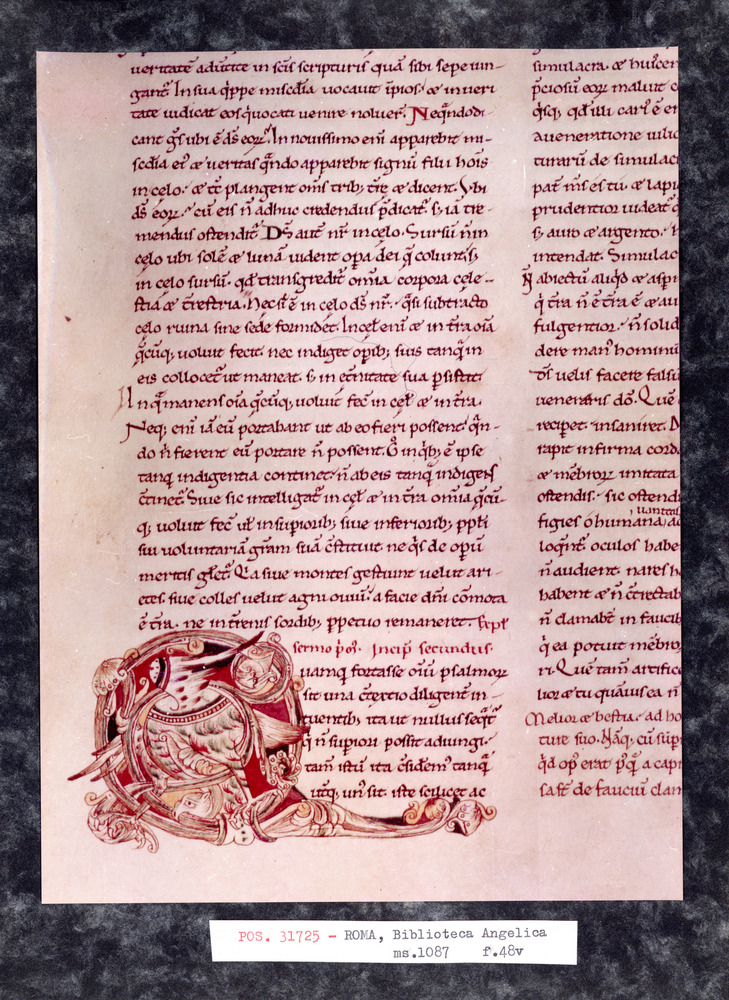 ueritatē aduertite in scīs scripturis quā sibi sepe iun-
gant᷑. In sua q̄ppe miscđia uocauit īpios. & in ueri
tate iudicat eos q̇ uocati uenire noluer̄. Neq̄ndo di
cant gs̄ ubi ē ds̄ eoꝝ. In nouissimo eni apparebit mi-
scđia ei᷒ & ueritas q̄ndo apparebit signū filii hois
in celo. & tc̄ plangent om̄s trib; tr̄e & dicent. Vbi
ds̄ eoꝝ. cū eis n̄ adhuc credendus p̄dicat᷑ s; iā tre-
mendus ostendit᷑. Ds̄ aut̄ nr̄ in celo. Sursū n̄ in
celo ubi solē & lunā uident opa dei q̄ colunt. s;
in celo sursū. qd̄ transgredit᷑ omīa corpora cele-
stia & tr̄estria. Nec sic ē in celo ds̄ nr̄. q̄si subtracto
celo ruina sine sede formidet. In cel̄ eni & in tr̄a oīa
q̄cūq; uoluit fecit. nec indiget opib; suis tanq̄ in
eis collocet᷑ ut maneat. s; in etn̄itate sua psistit
In q̄ manens oīa q̄cūq; uoluit fec̄ in cel̄ & in tr̄a.
Neq; eni iā eū portabant ut ab eo fieri possent. q̄n-
do n̄ fierent eū portare n̄ possent. G̊ in qb; ē ipse
tanq̄ indigentia continet. n̄ ab eis tanq̄ indigens
c̄tinet᷑. Siue sic intelligat᷑ in cel̄ & in tr̄a omīa q̄cū-
q; uoluit fec̄ ul̄ in supiorib; siue inferiorib; ppl̄i
sui uoluntariā grām suā c̄stituit ne q̇s de opū
meritis gl̄et᷑. Q̄a siue montes gestiunt uelut ari-
etes. siue colles uelut agni ouiū. a facie dn̄i cōmota
ē tr̄a. ne in tr̄enis sordib; ppetuo remaneret. Expl̄
sermo p̄o᷒. Incip̄ secundus.
Quamq̄ fortasse oīū psalmoꝝ
sit una c̄textio diligent̄ in-
tuentib; ita ut nullus seq̄t᷑
q̇ n̄ supiori possit adiungi.
tam istū ita c̄sidem᷒ tanq̄
ut̄q; un᷒ sit. iste scilicet ac
simulacra. & huicer
p̄ciosū eoꝝ maluit c
q̇sq; qd̄ illi car᷒ ē er
a ueneratione uilio
turarū de simulac
pat̄ ms̄ es tu. & lapi
prudentior uideat᷑ q
s; auro & argento.
intendat. Simulac
N̄ abiectū aliqd̄ & aspi
q̇ tr̄a n̄ ē tr̄a ē & au
fulgentior. n̄ solid
dere man᷒ hominū
uelis facere falsū
uenereris dō. Quē
recipet. insaniret.
rapit infirma cord
& mēbroꝝ imitata
ostendis. sic ostend
uanitas
figies o humana ac
loqn̄t᷑. oculos habe
n̄ audient. nares h
habent & n̄ c̄trectab
n̄ clamabt̄ in faucib
q̇ ea potuit mēbro
ri. Quē tam̄ artific
lior & tu quāuis ea n̄
Melior & bestia. ad ho
ture suo. Nāq; cū sup
qd̄ op᷒ erat p᷒ q̄ a capi
sat᷒ de fauciū clam
POS. 31725 - ROMA, Biblioteca Angelica
ms.1087 f.48v